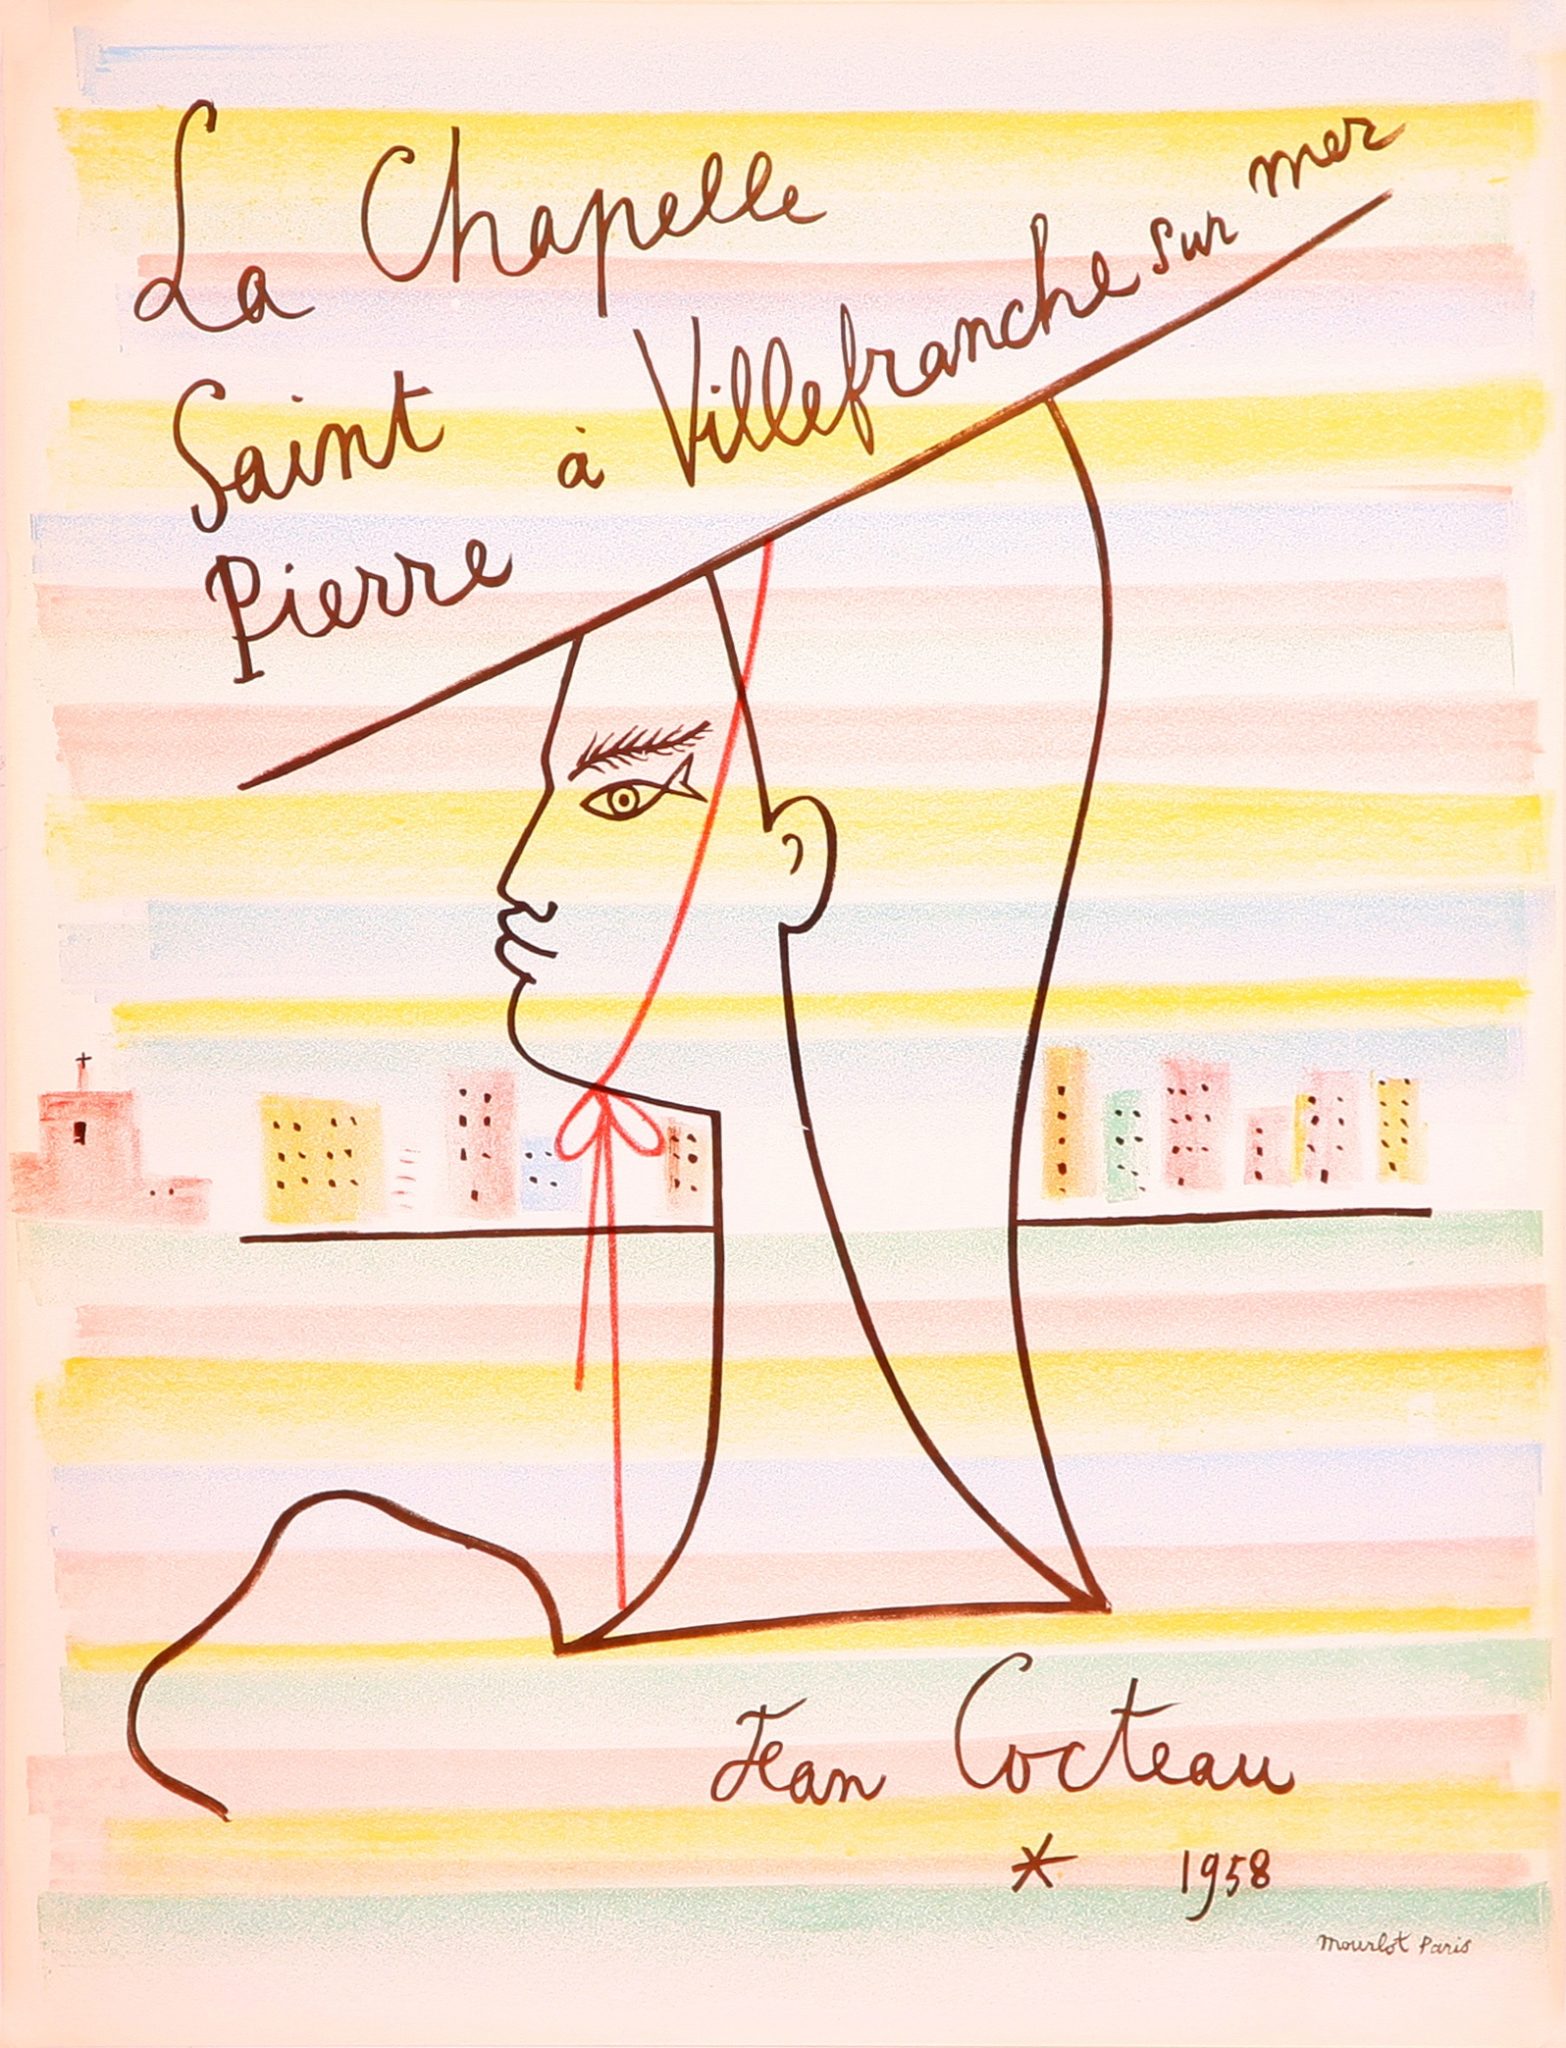 La Chapelle
Saint
Pierre
à Villefranche sur mer
Jean Cocteau
* 1958
Mourlot Paris